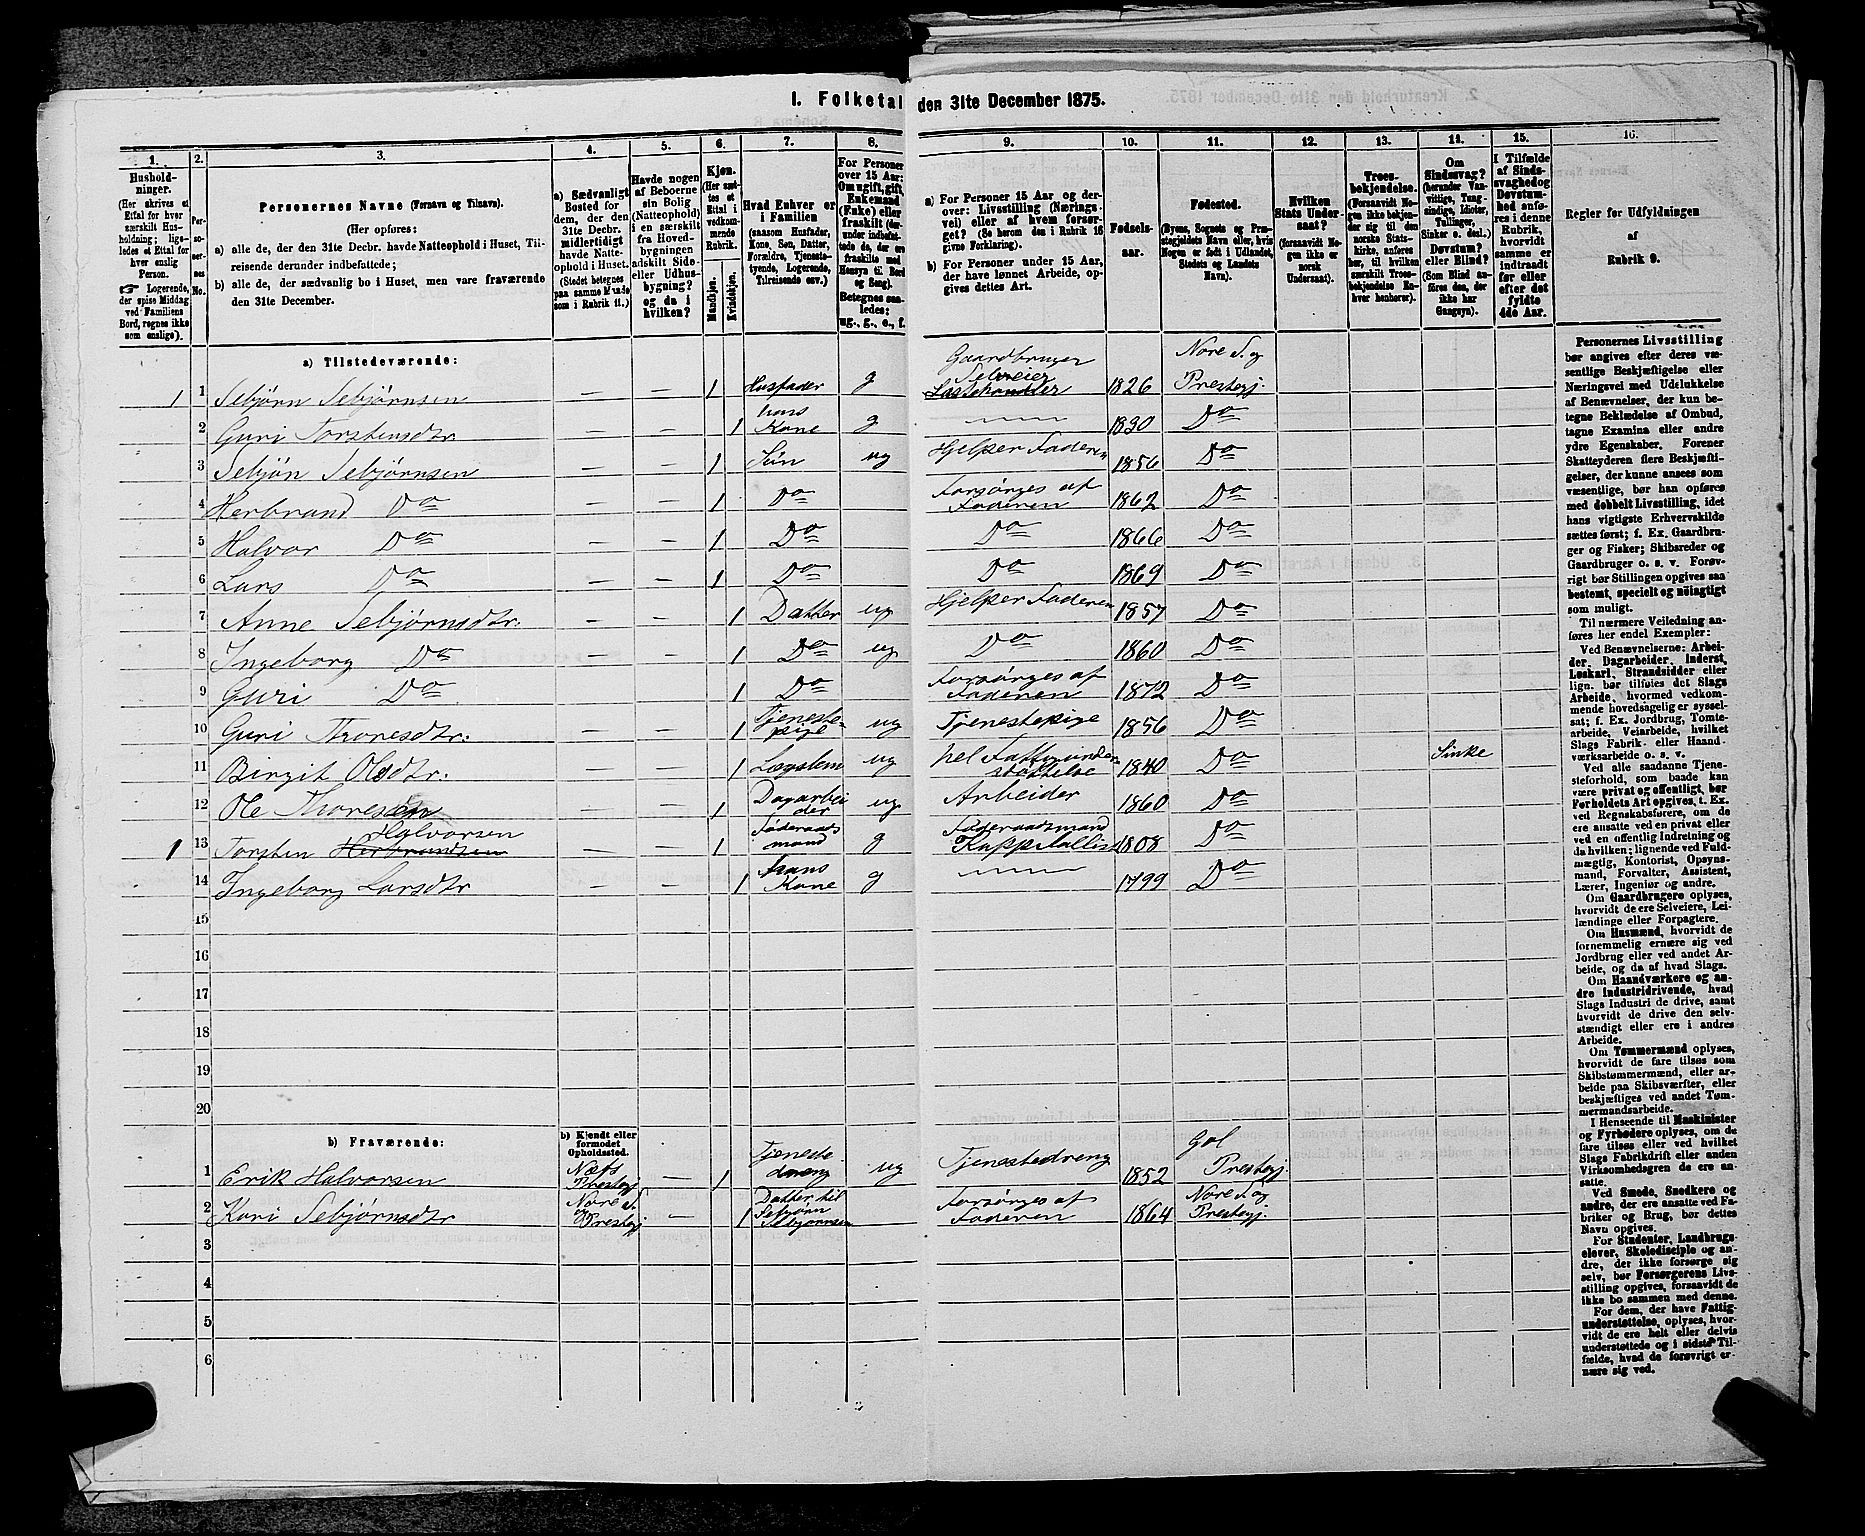 1. Folketal den 31te December 1875.
1. 2. 3. 4. 5. 6. 7. 8. 9. 10. 11. 12. 13. 14. 15. 16.
Hushold-
ninger.
(Her skrives et
Ettal for hver
særskilt Hus-
holdning; lige-
ledes et Ettal for
hver enslig
Person.
☞ Logerende,
der spise Middag
ved Familiens
Bord, regnes ikke
som enslige).
Per-
so-
ner-
nes
No.
Personernes Navne (Fornavn og Tilnavn).
(Her opføres:
a) alle de, der den 31te Decbr. havde Natteophold i Huset, Til-
reisende derunder indbefattede;
b) alle de, der sædvanlig bo i Huset, men vare fraværende
den 31te December.
a) Sædvanligt
Bosted for
dem, der den
31te Decbr.
midlertidigt
havde Natte-
ophold i Huset.
(Stedet betegnes
paa samme Maade
som i Rubrik 11.)
Havde nogen
af Beboerne
sin Bolig
(Natteophold)
i en særskilt
fra Hoved-
bygningen
adskilt Side-
eller Udhus-
bygning?
og da i
hvilken?
Kjøn.
(Her sæt-
tes et
Ettal i
vedkom-
mende
Rubrik.
Mandkjøn.
Kvindekjøn.
Hvad Enhver er
i Familien
(saasom Husfader,
Kone, Søn, Datter,
Forældre, Tjeneste-
tyende, Logerende,
Tilreisende osv.)
For Personer
over 15 Aar:
Om ugift, gift,
Enkemand
(Enke) eller
fraskilt (der-
under indbefat-
tede de, der ere
fraskilte med
Hensyn til Bord
og Seng).
Betegnes saa-
ledes:
ug., g., e., f.
a) For Personer 15 Aar og der-
over: Livsstilling (Nærings-
vei) eller af hvem forsør-
get? (Se herom den i Rubrik 16
givne Forklaring).
b) For Personer under 15 Aar,
der have lønnet Arbeide, op-
gives dettes Art.
Fødsels-
aar.
Fødested.
(Byens, Sognets og Præ-
stegjeldets Navn eller, hvis
Nogen er født i Udlandet,
Stedets og Landets
Navn).
Hvilken
Stats Under-
saat?
(forsaavidt No-
gen ikke er
norsk
Undersaat).
Troes-
bekjendelse.
(Forsaavidt No-
gen ikke bekjen-
der sig til den
norske Stats-
kirke, anføres
her, til hvilken
særskilt Troes-
bekjendelse En-
hver henhører).
Om
Sindssvag?
(herunder Van-
vittige, Tung-
sindige, Idioter,
Tullinger,
Sinker o. desl.)
Døvstum?
eller Blind?
(Som Blind an-
føres den, der
ikke har
Gangsyn).
I Tilfælde
af Sinds-
svaghed og
Døvstum-
hed anfø-
res i denne
Rubrik,
hvorvidt
samme er
indtraadt
før eller
efter det
fyldte
4de Aar.
Regler for Udfyldningen
af
Rubrik 9.
a) Tilstedeværende:
1 1 Sebjørn Sebjørnsen — — 1 Husfader g Gaardbruger Selveier Løstehandler 1826 Nore S. og Prestegj.
2 Guri Torstensdtr — — 1 hans Kone g — 1830 Do
3 Sebjøn Sebjørnsen — — 1 Søn ug Hjelper Faderen 1856 Do
4 Herbrand Do — — 1 Do Forsørges af Faderen 1862 Do
5 Halvor Do — — 1 Do Do 1866 Do
6 Lars Do — — 1 Do Do 1869 Do
7 Anne Sebjørnsdtr. — — 1 Datter ug Hjelper Faderen 1857 Do
8 Ingeborg Do — — 1 Do ug Do 1860 Do
9 Guri Do — — 1 Do Forsørges af Faderen 1872 Do
10 Guri Thoresdtr. — — 1 Tjeneste-pige ug Tjenestepige 1856 Do
11 Birgit Olsdtr. — — 1 Lægslem ug hel Fattigunder støttelse 1840 Do Sinke
12 Ole Thoresen — — 1 Dagarbei der ug Arbeider 1860 Do
1 13 Torsten Herbrandsen Halvorsen — — 1 Føderaads mand g Føderaadsmand Kappitallist 1808 Do
14 Ingeborg Larsdtr — — 1 hans Kone g — 1799 Do
15
16
17
18
19
20
b) Fraværende:
b) Kjendt eller
formodet
Opholdssted.
1 Erik Halvorsen Næss Prestegj — 1 Tjeneste dreng ug Tjenestedreng 1852 Gol Prestegj.
2 Kari Sebjørnsdtr Nore S. og Prestegj — 1 Datter til Sebjørn Sebjørnsen Forsørges af Faderen 1864 Nore S. og Prestegj.
3
4
5
6
Personernes Livsstilling
bør angives efter deres væ-
sentlige Beskjæftigelse eller
Næringsvei med Udelukkelse
af Benævnelser, der kun be-
tegne Beklædelse af Ombud,
tagne Examina eller andre
ydre Egenskaber. Forener
Skatteyderen flere Beskjæfti-
gelser, der kunne ansees som
væsentlige, bør han opføres
med dobbelt Livsstilling, idet
hans vigtigste Erhvervskilde
sættes først; f. Ex. Gaardbru-
ger og Fisker; Skibsreder og
Gaardbruger o. s. v. Forøv-
rigt bør Stillingen opgives saa
bestemt, specielt og nøiagtigt
som muligt.
Til nærmere Veiledning an-
føres her endel Exempler:
Ved Benævnelserne: Arbei-
der, Dagarbeider, Inderst,
Løskarl, Strandsidder eller
lign. bør tilføies det Slags
Arbeide, hvormed vedkom-
mende hovedsagelig er syssel-
sat; f. Ex. Jordbrug, Tomte-
arbeide, Veiarbeide, hvilket
Slags Fabrik- eller Haand-
værksarbeide o. s. v.
Ved alle saadanne Tjene-
steforhold, som baade kan
være privat og offentligt, bør
Forholdets Art opgives, t. Ex.
ved Regnskabsførere, om de
ere ansatte ved en privat eller
ved en offentlig Indretning og
da hvilken; lignende ved Fuld-
mægtig, Kontorist, Opsyns-
mand, Forvalter, Assistent,
Lærer, Ingeniør og andre.
Om Gaardbrugere oplyses,
hvorvidt de ere Selveiere, Lei-
lændinge eller Forpagtere.
Om Husmænd, hvorvidt de
fornemmelig ernære sig ved
Jordbrug eller ved andet Ar-
beide, og da af hvad Slags.
Om Haandværkere og an-
dre Industridrivende, hvad
Slags Industri de drive, samt
hvorvidt de drive den selv-
stændigt eller ere i andres
Arbeide.
Om Tømmermænd oplyses,
hvorvidt de fare tilsøs som
Skibstømmermænd, eller ar-
beide paa Skibsværfter, eller
beskjæftiges ved andet Tøm-
mermandsarbeide.
I Henseende til Maskinister
og Fyrbødere oplyses, om de
fare tilsøs eller ved hvilket
Slags Fabrikdrift eller anden
Virksomhed de ere an-
satte.
Ved Smede, Snedkere og
andre, der ere ansatte ved Fa-
briker og Brug, bør dettes
Navn opgives.
For Studenter, Landbrugs-
elever, Skoledisciple og an-
dre, der ikke forsørge sig
selv, bør Forsørgerens Livs-
stilling opgives, forsaavidt de
ikke bo sammen med denne.
For dem, der have Fattig-
understøttelse, oplyses, hvor-
vidt de ere helt eller delvis
understøttede og i sidste Til-
fælde, hvad de forøvrigt er-
nære sig ved.